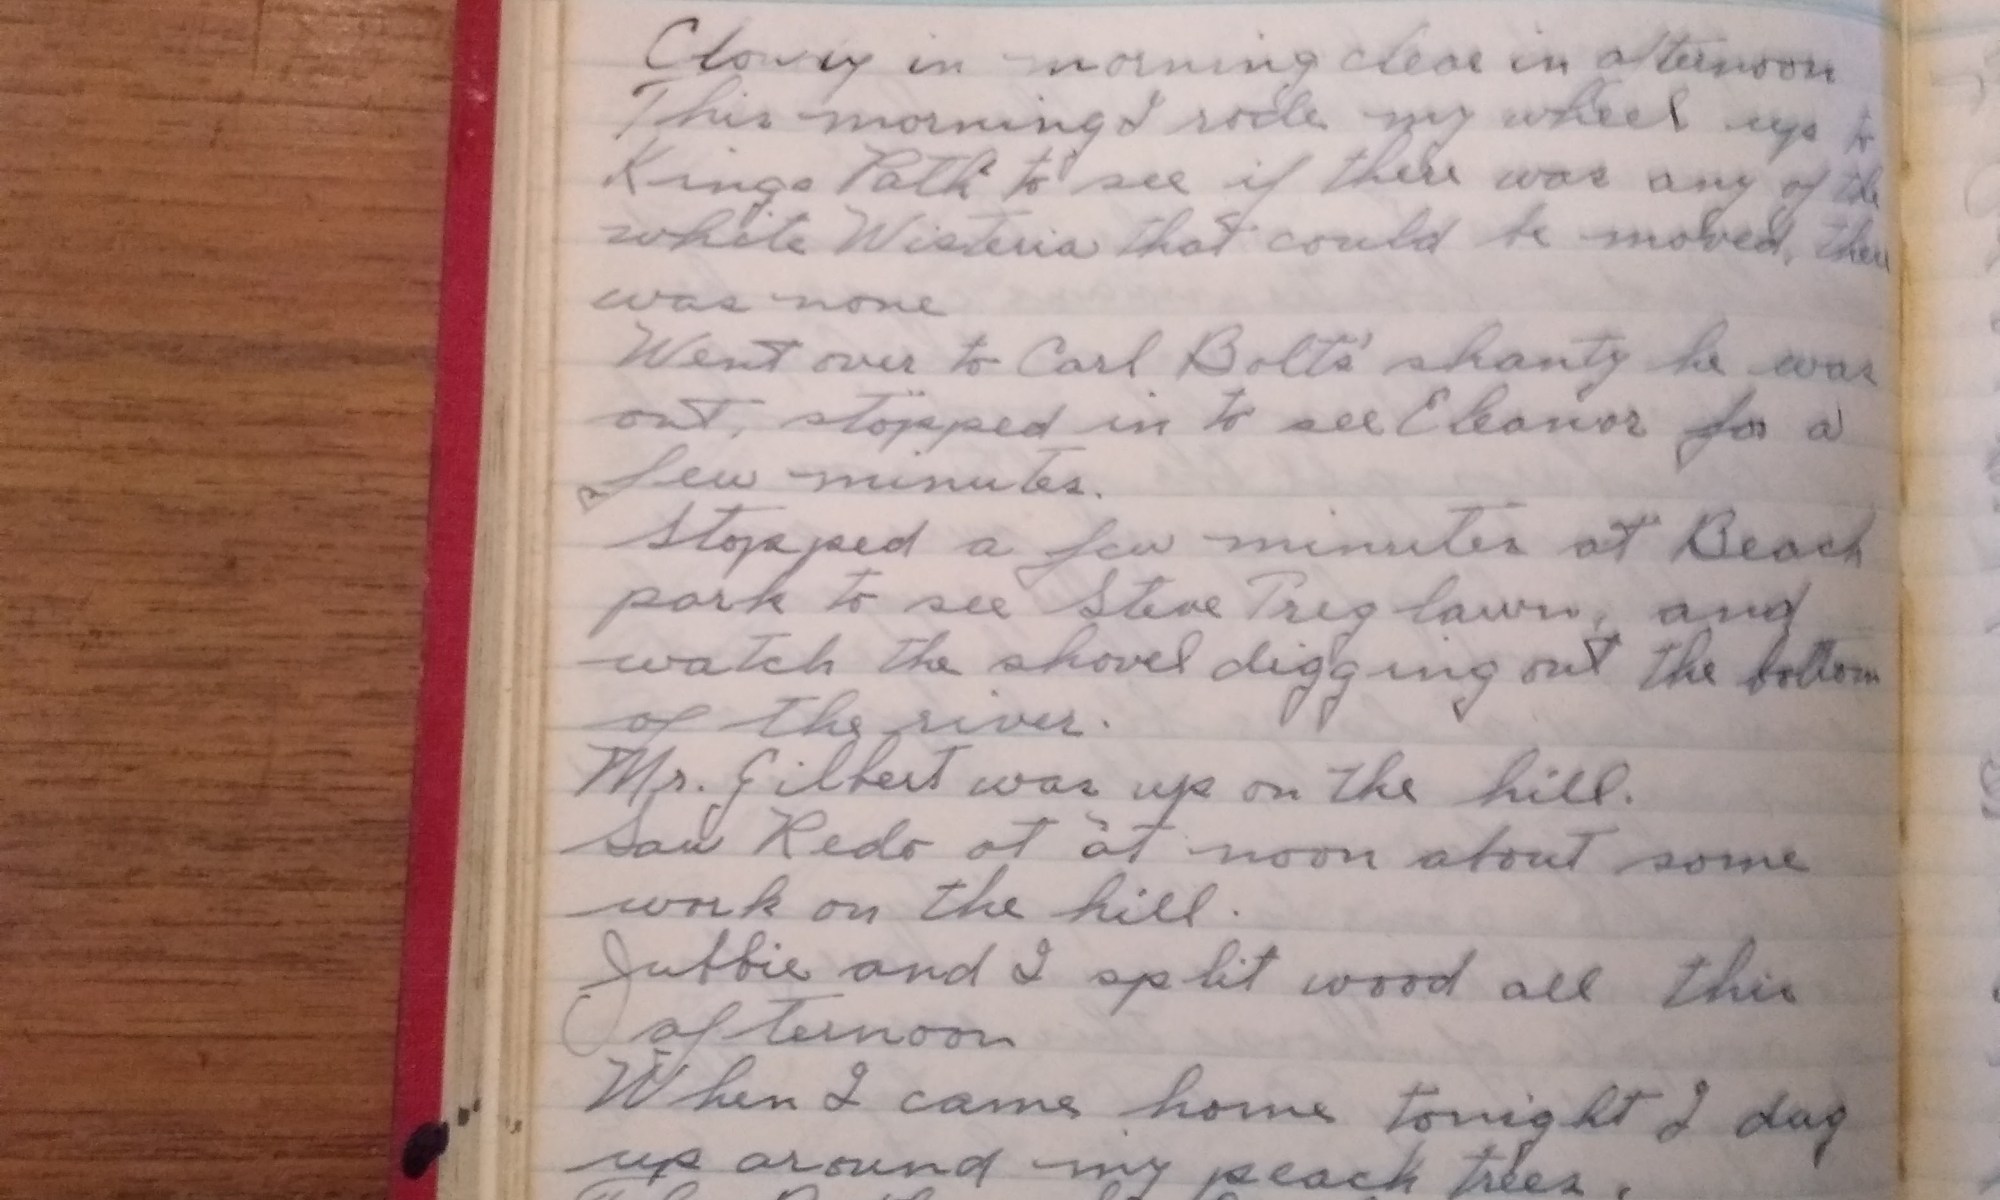 Clowey in morning clear in afternoon
This morning I rode my wheel up to
Kings Path to see if there was any of the
white Wisteria that could be moved, there
was none
Went over to Carl Bolts' shanty he was
out, stopped in to see Eleanor for a
few minutes.
Stopped a few minutes at Beach
park to see Steve Treglawn, and
watch the shovel digging out the bottom
of the river.
Mr. Gilbert was up on the hill.
Saw Redo at at noon about some
work on the hill.
Jubbie and I split wood all this
afternoon
When I came home tonight I dug
up around my peach trees.